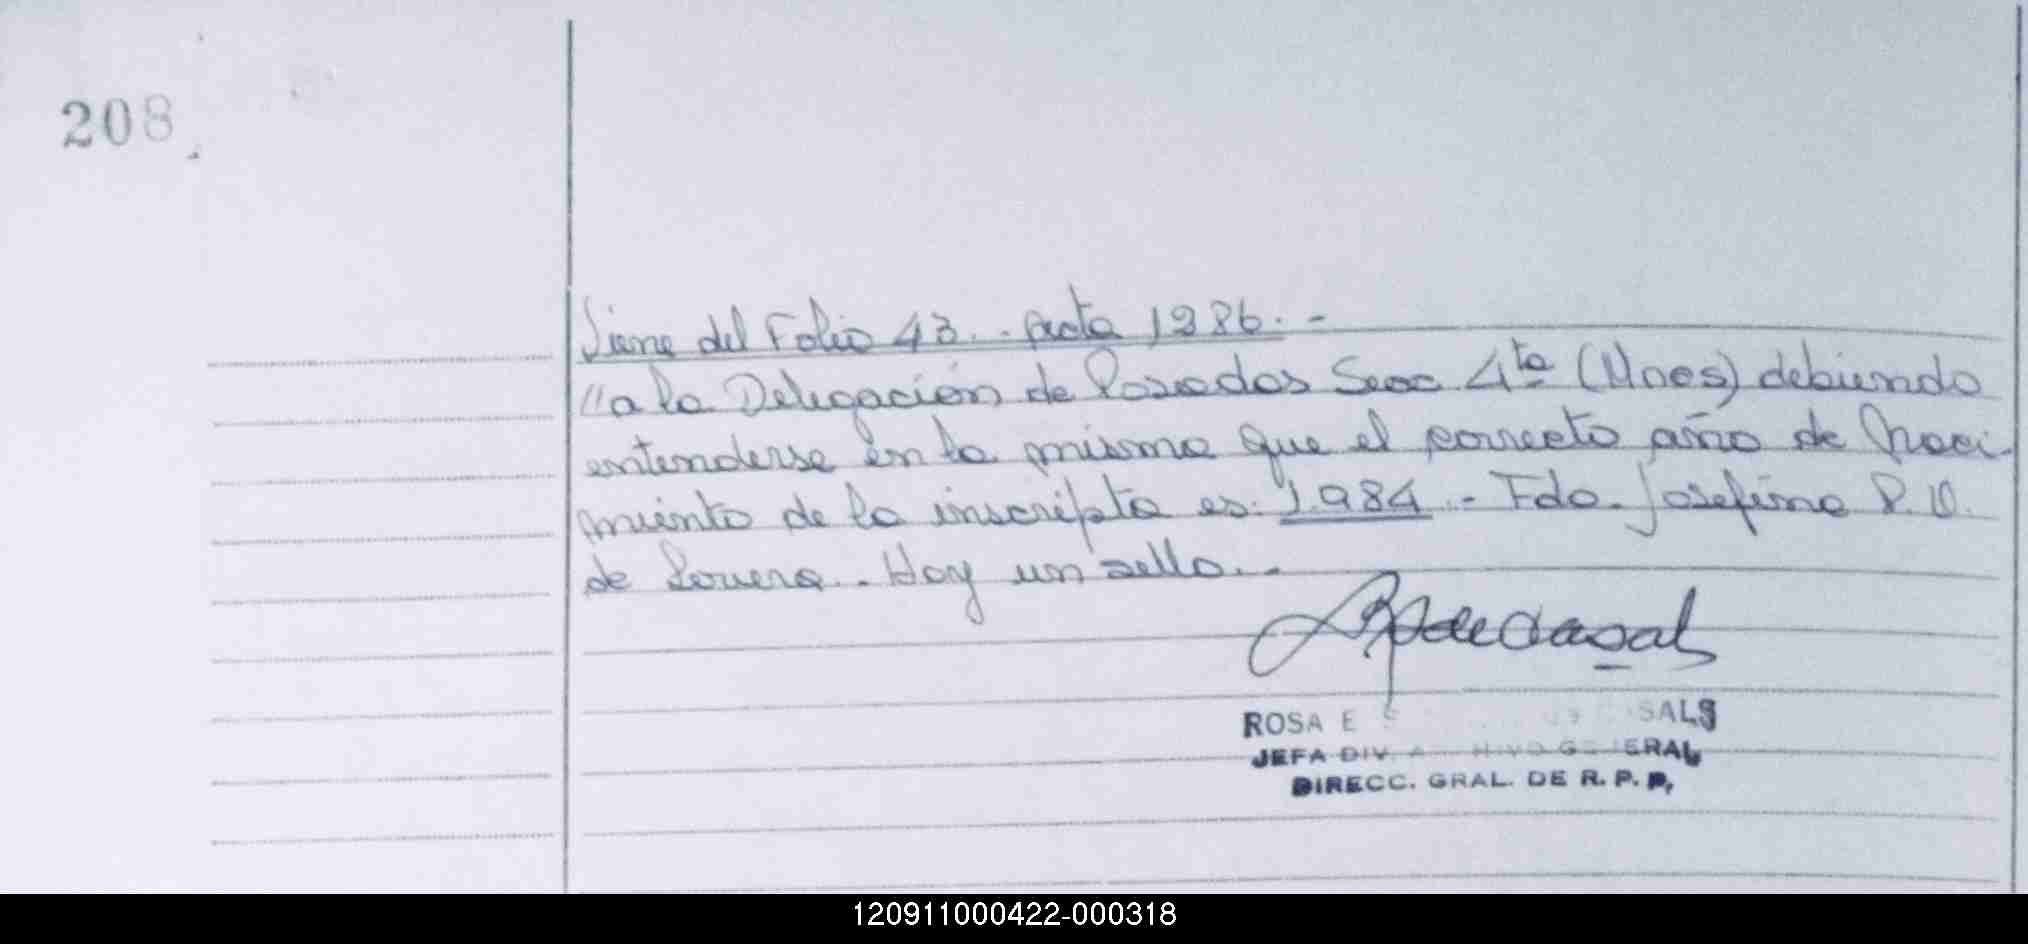 208
Viene del Folio 43.- Acta 1286.-
"a la Delegación de Posadas Secc 4ta (Mnes) debiendo
entenderse en la misma que el correcto año de Naci-
miento de la inscripta es: 1.984.- Fdo. Josefina P. V.
de Lovera.. Hay un sello.-
ROSA E SALS
JEFA DIV. ARCHIVO GENERAL
DIRECC. GRAL. DE R. P. P.
120911000422-000318